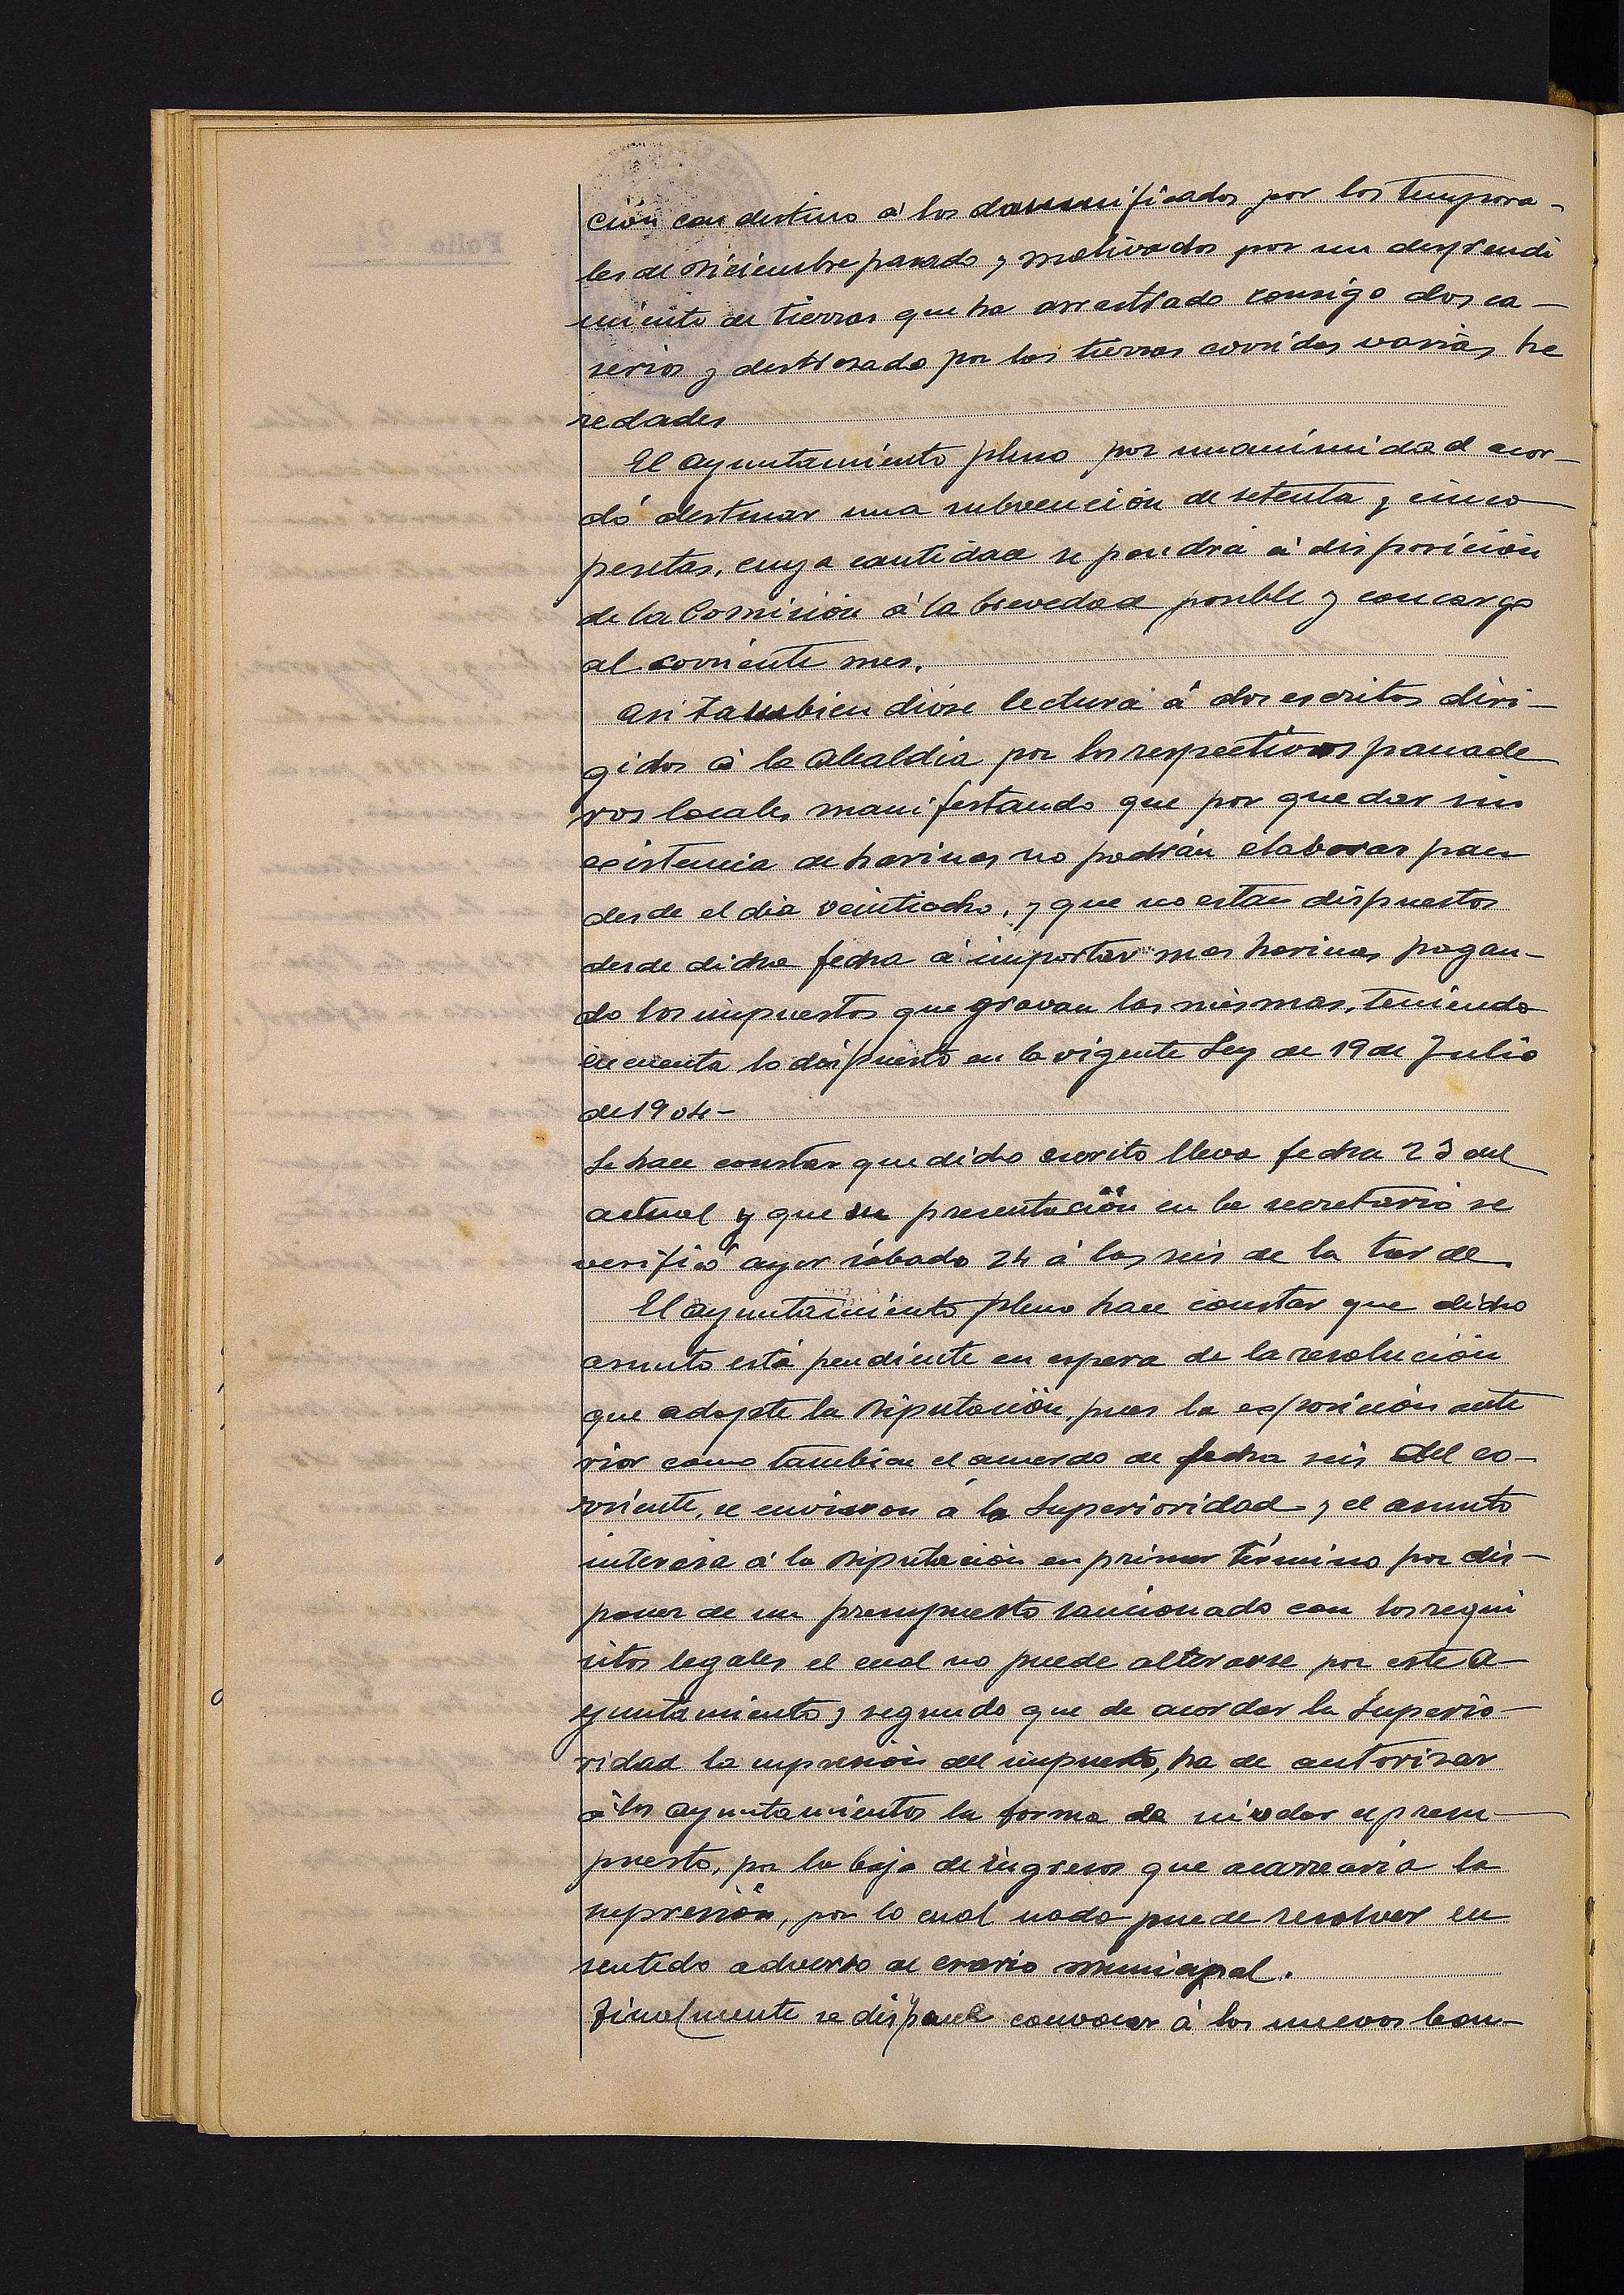 ción con destino á los dannnificados por los tempora-
les de Diciembre pasado y motivados por un desprendi
miento de tierras que ha arrastrado consigo dos ca-
serios y destrozado por las tierras corridas varias he
redades
El Ayuntamiento pleno por unanimidad acor-
dó destinar una subvención de setenta y cinco
pesetas, cuya cantidad se pondrá á disposición
de la Comisión á la brevedad posible y con cargo
al corriente mes.
Asi tambien dióse lectura á dos escritos diri-
gidos á la Alcaldia por los respectivos panade
ros locales manifestando que por quedar sin
existencia de harinas no podrán elaborar pan
desde el dia veintiocho, y que no estan dispuestos
desde dicha fecha á importar mas harinas pagan-
do los impuestos que gravan las mismas, teniendo
en cuenta lo dispuesto en la vigente Ley de 19 de Julio
de 1904-
Se hace constar que dicho escrito lleva fecha 23 del
actual y que su presentación en la secretaria se
verificó ayer sábado 24 á las seis de la tarde.
El ayuntamiento pleno hace constar que dicho
asunto está pendiente en espera de la resolución
que adopte la Diputación, pues la exposición ante
rior como tambien el acuerdo de fecha seis del co-
rriente, se enviaron á la Superioridad y el asunto
interesa á la Diputación en primer término por dis-
poner de un presupuesto sancionado con los requi
sitos legales el cual no puede alterarse por este A-
yuntamiento y segundo que de acordar la Superio-
ridad la supresión del impuesto, ha de autorizar
á los Ayuntamientos la forma de nivelar el presu-
puesto, por la baja de ingresos que acarrearia la
supresión, por lo cual nada puede resolver en
sentido adverso al erario municipal.
Finalmente se dispone convocar á los nuevos Con-